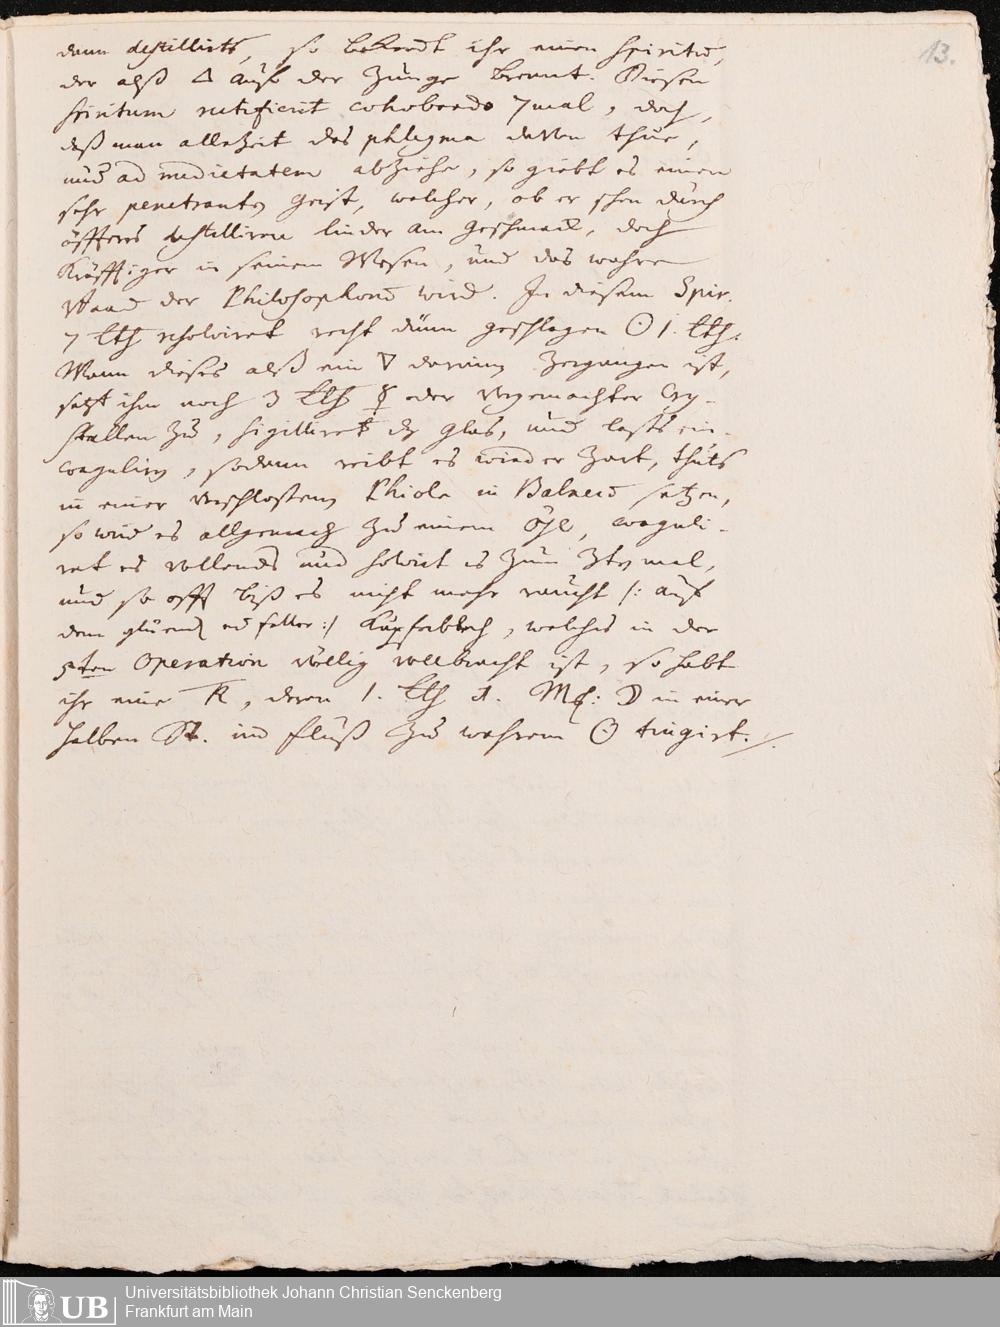 13.
dann destillirts, so bekomt ihr einen Spiritu,
der alß 🜂 auf der Zunge brennt. Diesen
Spiritum rectificirt cohobando 7mal, doch,
daß man allezeit das phlegma davon thue,
und ad medietatem abziehe, so giebt es einen
sehr penetranten Geist, welcher, ob er schon durch
öffteres destilliren linder am Geschmack, doch
Kräfftiger in seinem Wesen, und das wahre
der Philosophorum wird. In diesem Spir.
7 Lth resolviret recht dünn geschlagen ☉ 1. Lth.
Wann dieses alß ein 🜄 darinn zergangen ist,
setzt ihm noch 3 Lth ☿ oder Cry-
stallen zu, sigilliret dz Glas, und lasts ein-
coaguliren, sodann reibt es wieder Zart, thuts
in einer verschlossenen Phiole in Balneo setzen,
so wird es allgemach zu einem Öhl, coaguli-
ret es vollends und solvirt es zum 2ten mal,
und so offt biß es nicht mehr raucht /: auf
dem glüend :/ Kupferblech, welches in der
5ten Operation völlig vollbracht ist, so habt
ihr eine Tr, deren 1. Lth 1. Mk: ☽ in einer
halben St. im Fluß zu wahrem ☉ tingirt.
UB
Universitätsbibliothek Johann Christian Senckenberg
Frankfurt am Main